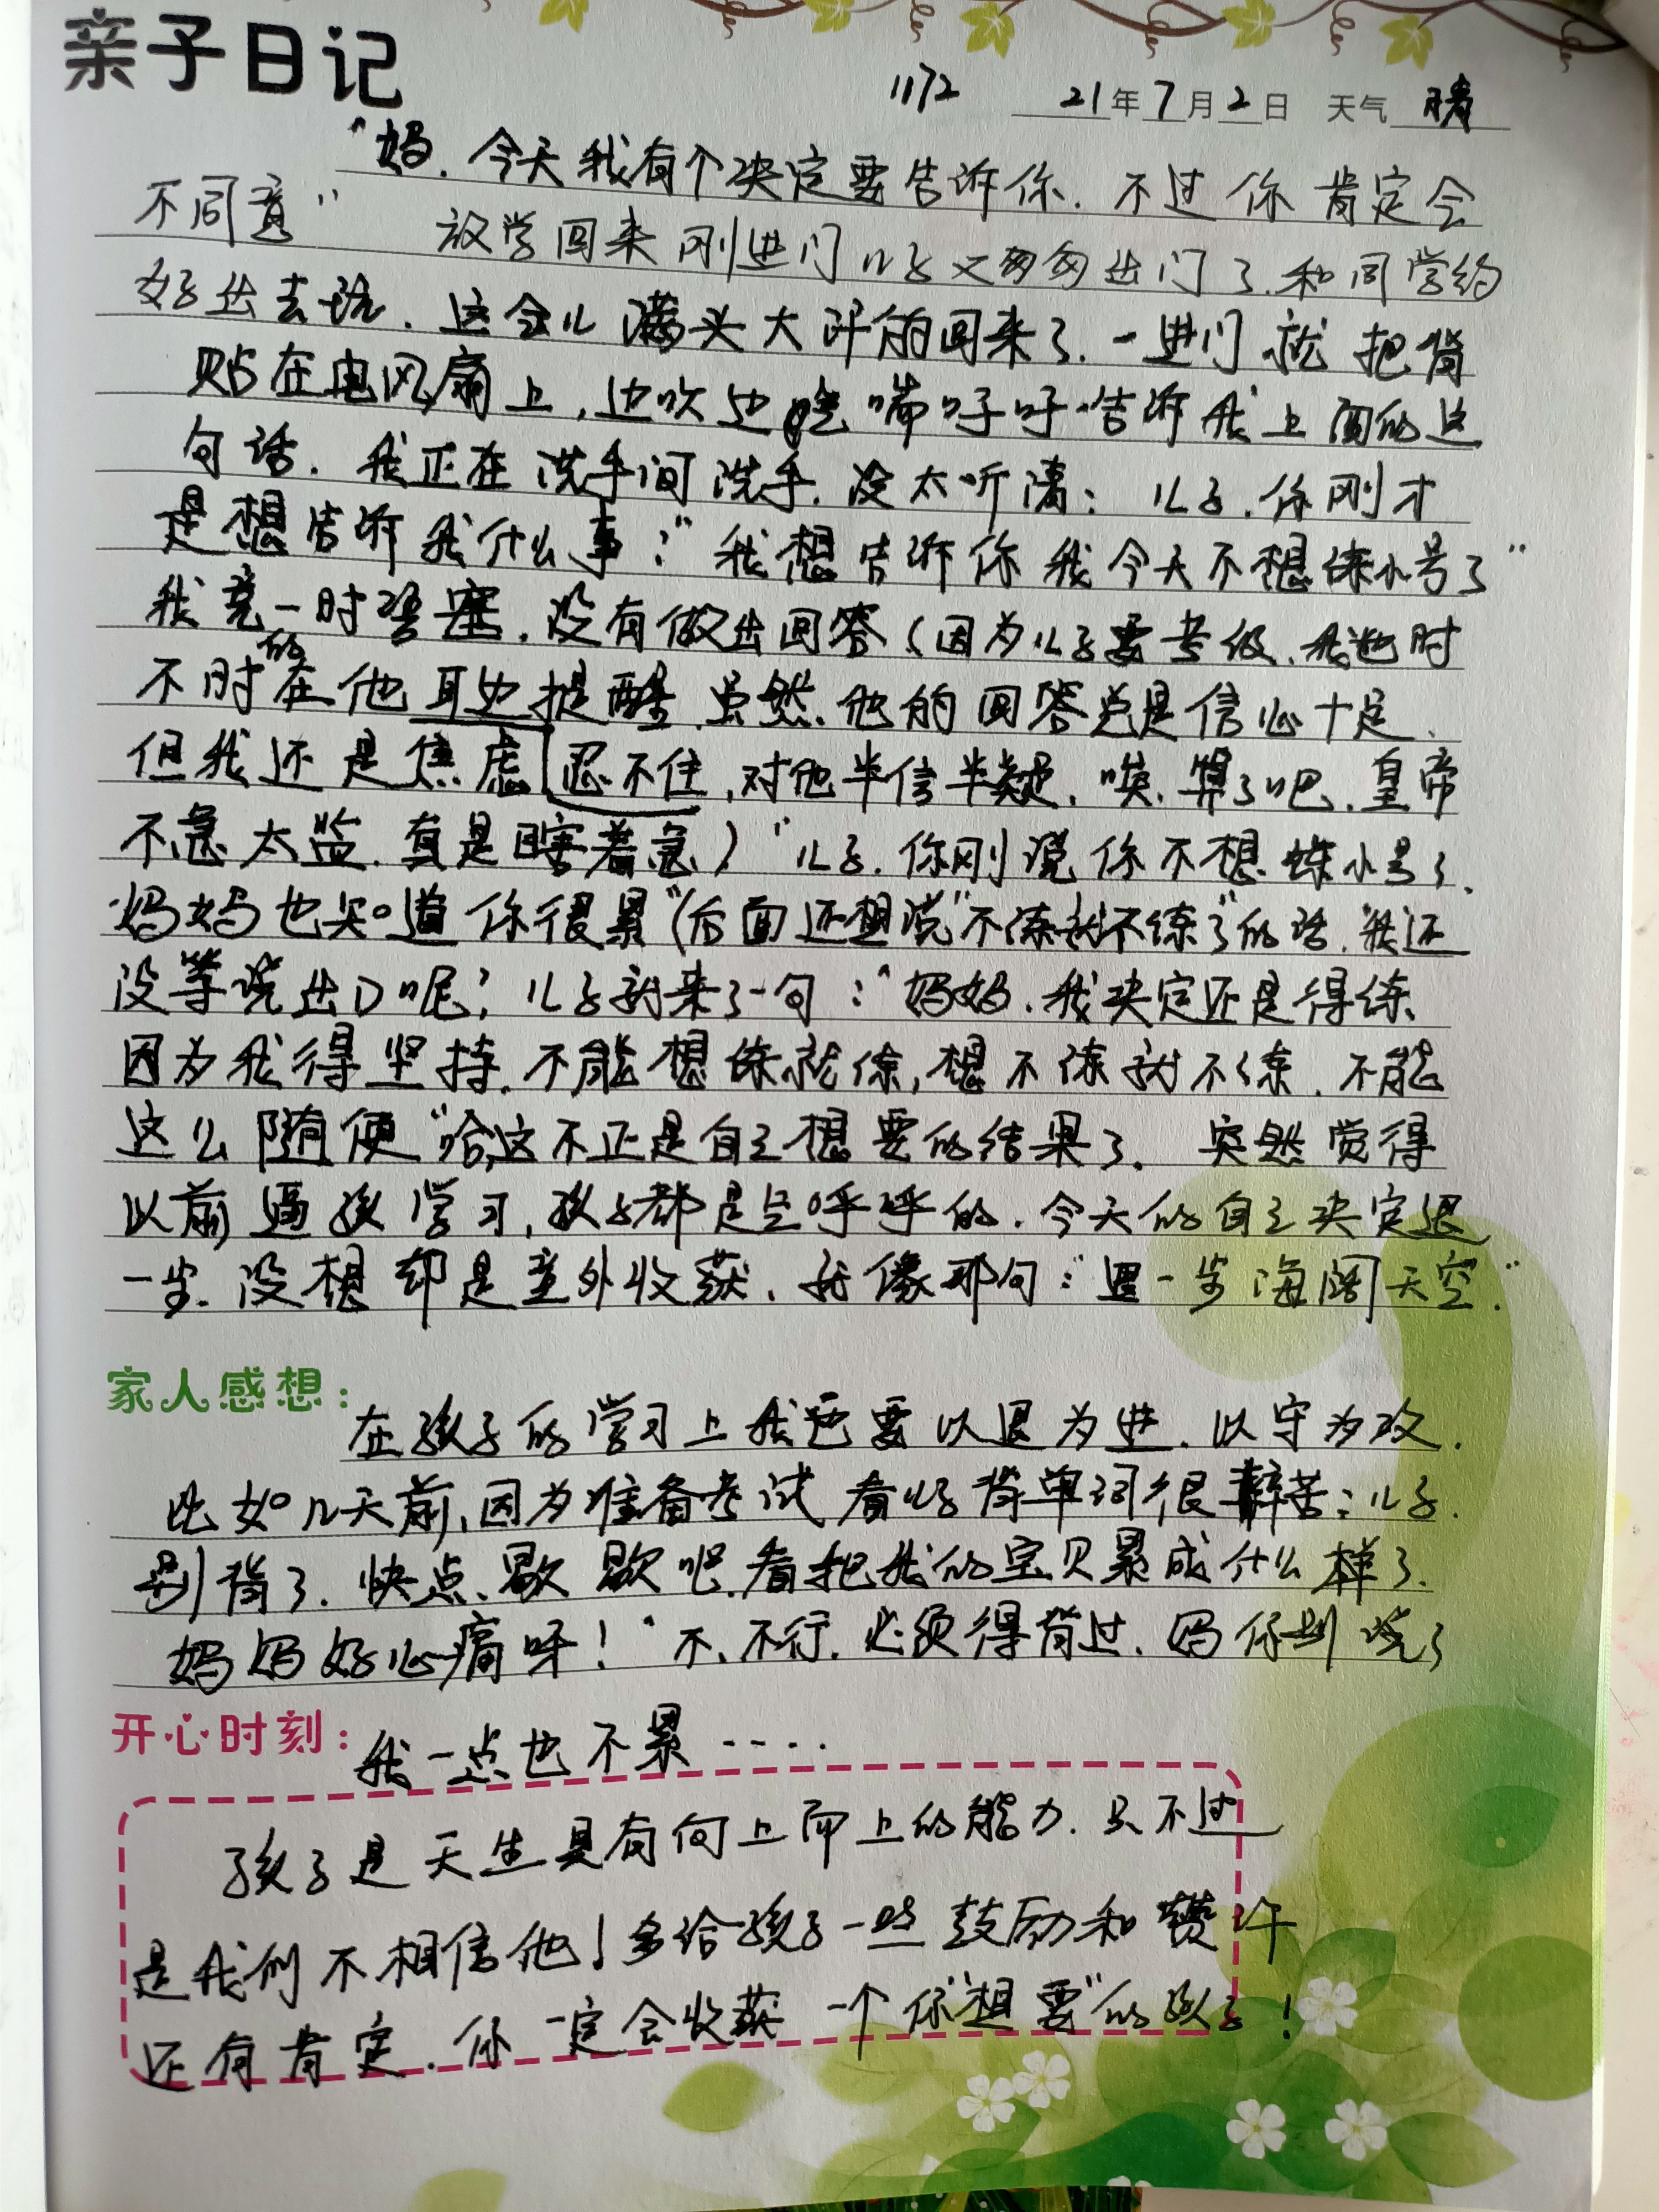 亲子日记
1172 21年7月2日 天气 晴
"妈.今天我有个决定要告诉你.不过你肯定会
不同意" 放学回来刚进门儿子又匆匆出门了.和同学约
好出去玩.这会儿满头大汗的回来了.一进门就把背
贴在电风扇上,边吹边喘呼呼告诉我上面的这
句话.我正在洗手间洗手.没太听清:儿子.你刚才
是想告诉我什么事?"我想告诉你我今天不想练小号了"
我竟一时语塞.没有做出回答(因为儿子要考级.我也时
不时的在他耳边提醒.虽然他的回答总是信心十足.
但我还是焦虑忍不住,对他半信半疑.唉.算了吧.皇帝
不急太监.真是瞎着急)"儿子.你刚说你不想练小号了.
妈妈也知道你很累"(后面还想说"不练就不练了"的话.我还
没等说出口呢?儿子就来了一句:"妈妈.我决定还是得练.
因为我得坚持.不能想练就练,想不练就不练.不能
这么随便"哈,这不正是自己想要的结果了.突然觉得
以前逼孩学习,孩子都是气呼呼的.今天的自己决定退
一步.没想却是意外收获.就像那句:"退一步海阔天空."
家人感想:
在孩子的学习上我也要以退为进.以守为攻.
比如几天前,因为准备考试看儿子背单词很辛苦:儿子.
别背了.快点.歇歇吧.看把我的宝贝累成什么样了.
妈妈好心痛呀!"不.不行.必须得背过.妈你别说了
开心时刻:
我一点也不累....
孩子是天生具有向上而上的能力.只不过
是我们不相信他!多给孩子一些鼓励和赞许
还有肯定.你一定会收获一个你"想要"的孩子!